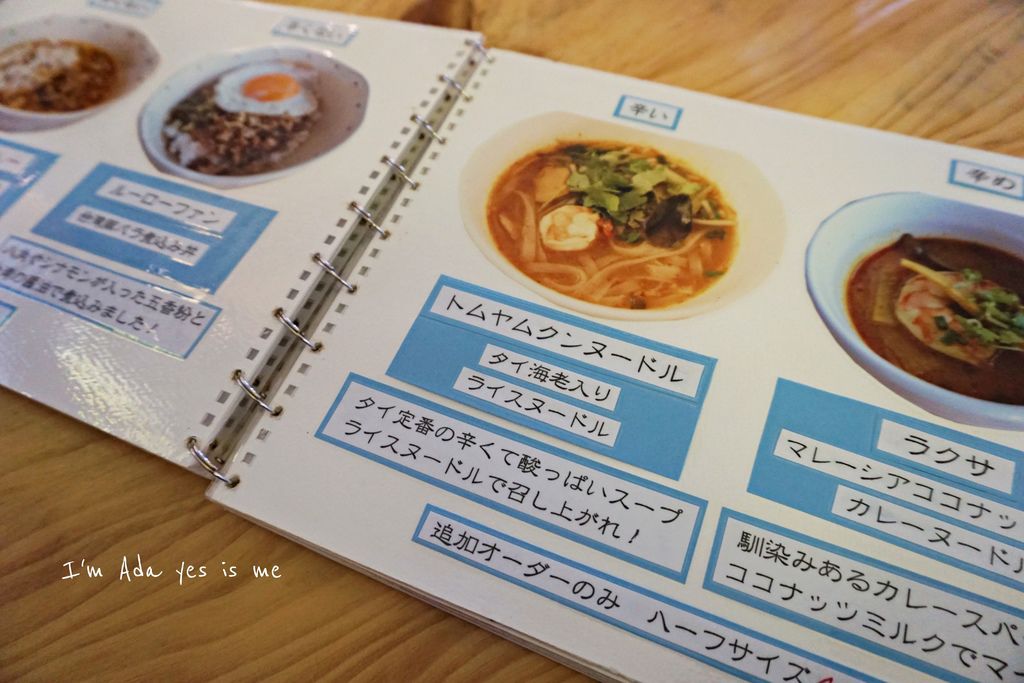 辛くない
ルーローファン
台湾豚バラ煮込み丼
八角やシナモンが入った五香粉と
煮込みました!
辛い
トムヤムクンヌードル
タイ海老入り
ライスヌードル
タイ定番の辛くて酸っぱいスープ
ライスヌードルで召し上がれ!
追加オーダーのみ ハーフサイズ
辛め
ラクサ
マレーシアココナッツ
カレーヌードル
馴染みあるカレースパ
ココナッツミルクでマ
I'm Ada yes is me